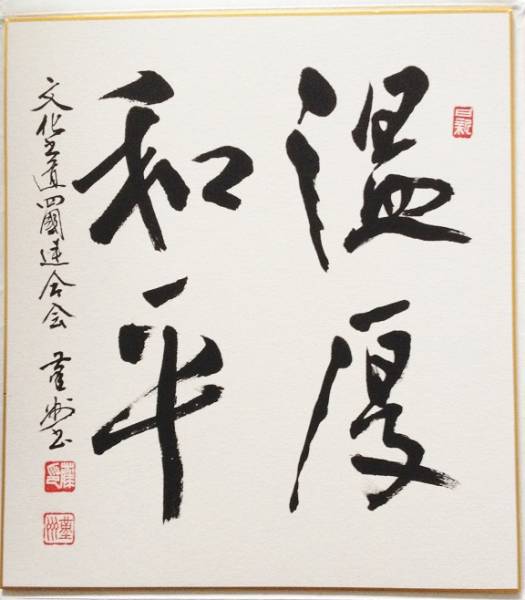 温厚
和平
文化書道四國連合会
書
日新